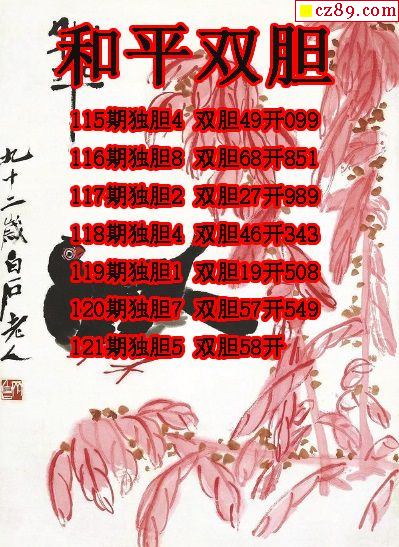 cz89.com
和平双胆
115期独胆4 双胆49开099
116期独胆8 双胆68开851
117期独胆2 双胆27开989
118期独胆4 双胆46开343
119期独胆1 双胆19开508
120期独胆7 双胆57开549
121期独胆5 双胆58开
九十二岁白石老人